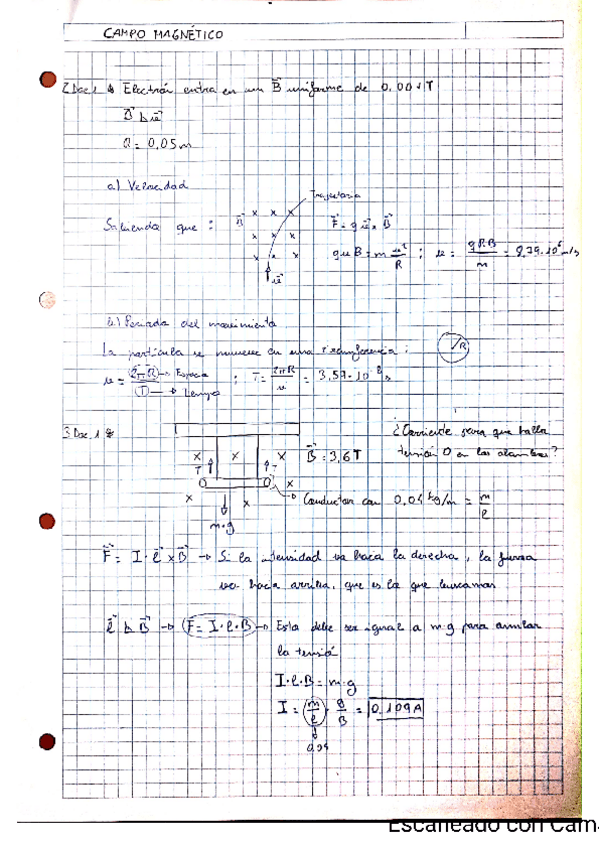 CAMPO MAGNÉTICO
2 Doc.1 Electrón entra en un B⃗ uniforme de 0,001T
B⃗ ⊥ v⃗
R = 0,05m
a) Velocidad
Trayectoria
Sabiendo que : B⃗ x x x F⃗ = q v⃗ x B⃗
x x x
quB = m u²/R ; u = qRB/m =
x x x
u⃗
b) Periodo del movimiento
La partícula se mueve en una circunferencia : R
u = 2πR/T → Espacio → Tiempo ; T = 2πR/u = 3,57·10⁻⁸ s
3 Doc.1 ¿Corriente para que halla
tensión 0 en los alambres?
x x x B⃗ = 3,6T
T T
x x x
Conductor con 0,04 kg/m = m/l
m·g
F⃗ = I·l⃗ x B⃗ → Si la intensidad va hacia la derecha, la fuerza
va hacia arriba, que es lo que buscamos
l⃗ ⊥ B⃗ → F = I·l·B → Esta debe ser igual a m·g para anular
la tensión
I·l·B = m·g
I = m/l · g/B = 0,109A
0,04
Escaneado con Cam